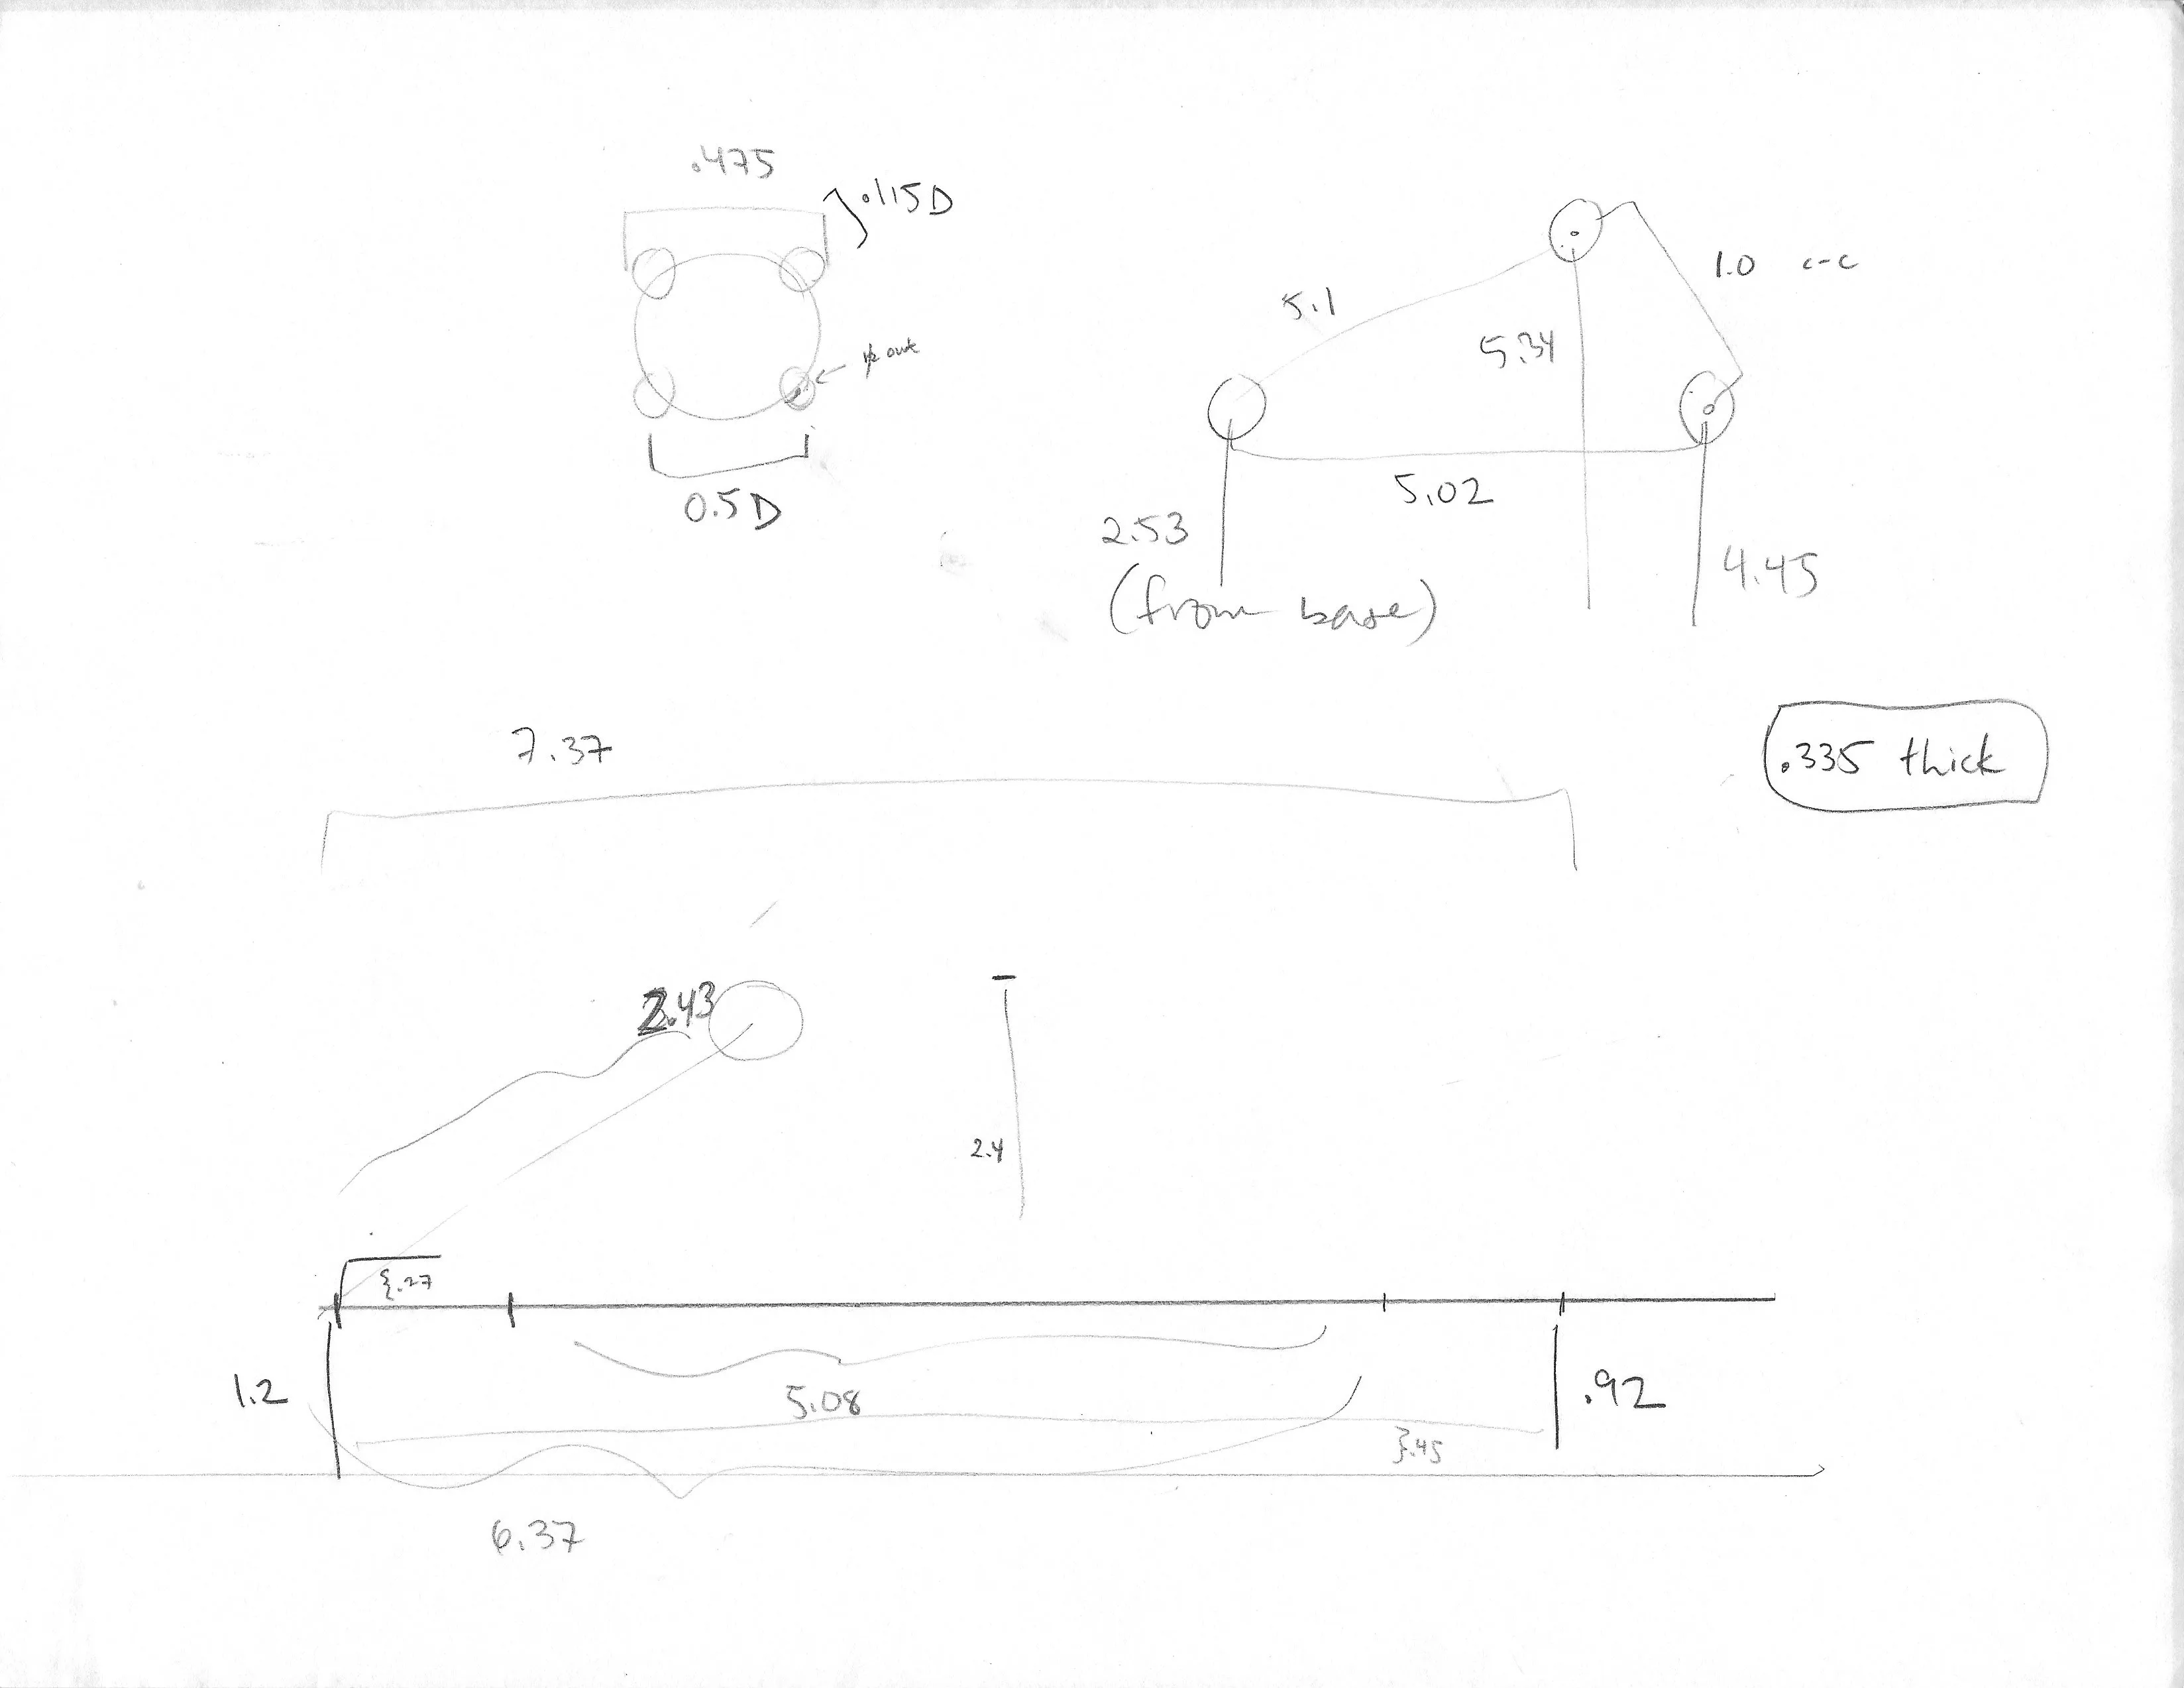 .475
.115D
1/2 out
0.5D
1.0 c-c
5.1
5.34
5.02
2.53
(from base)
4.45
7.37
.335 thick
2.43
2.4
.27
1.2
5.08
.92
.45
6.37